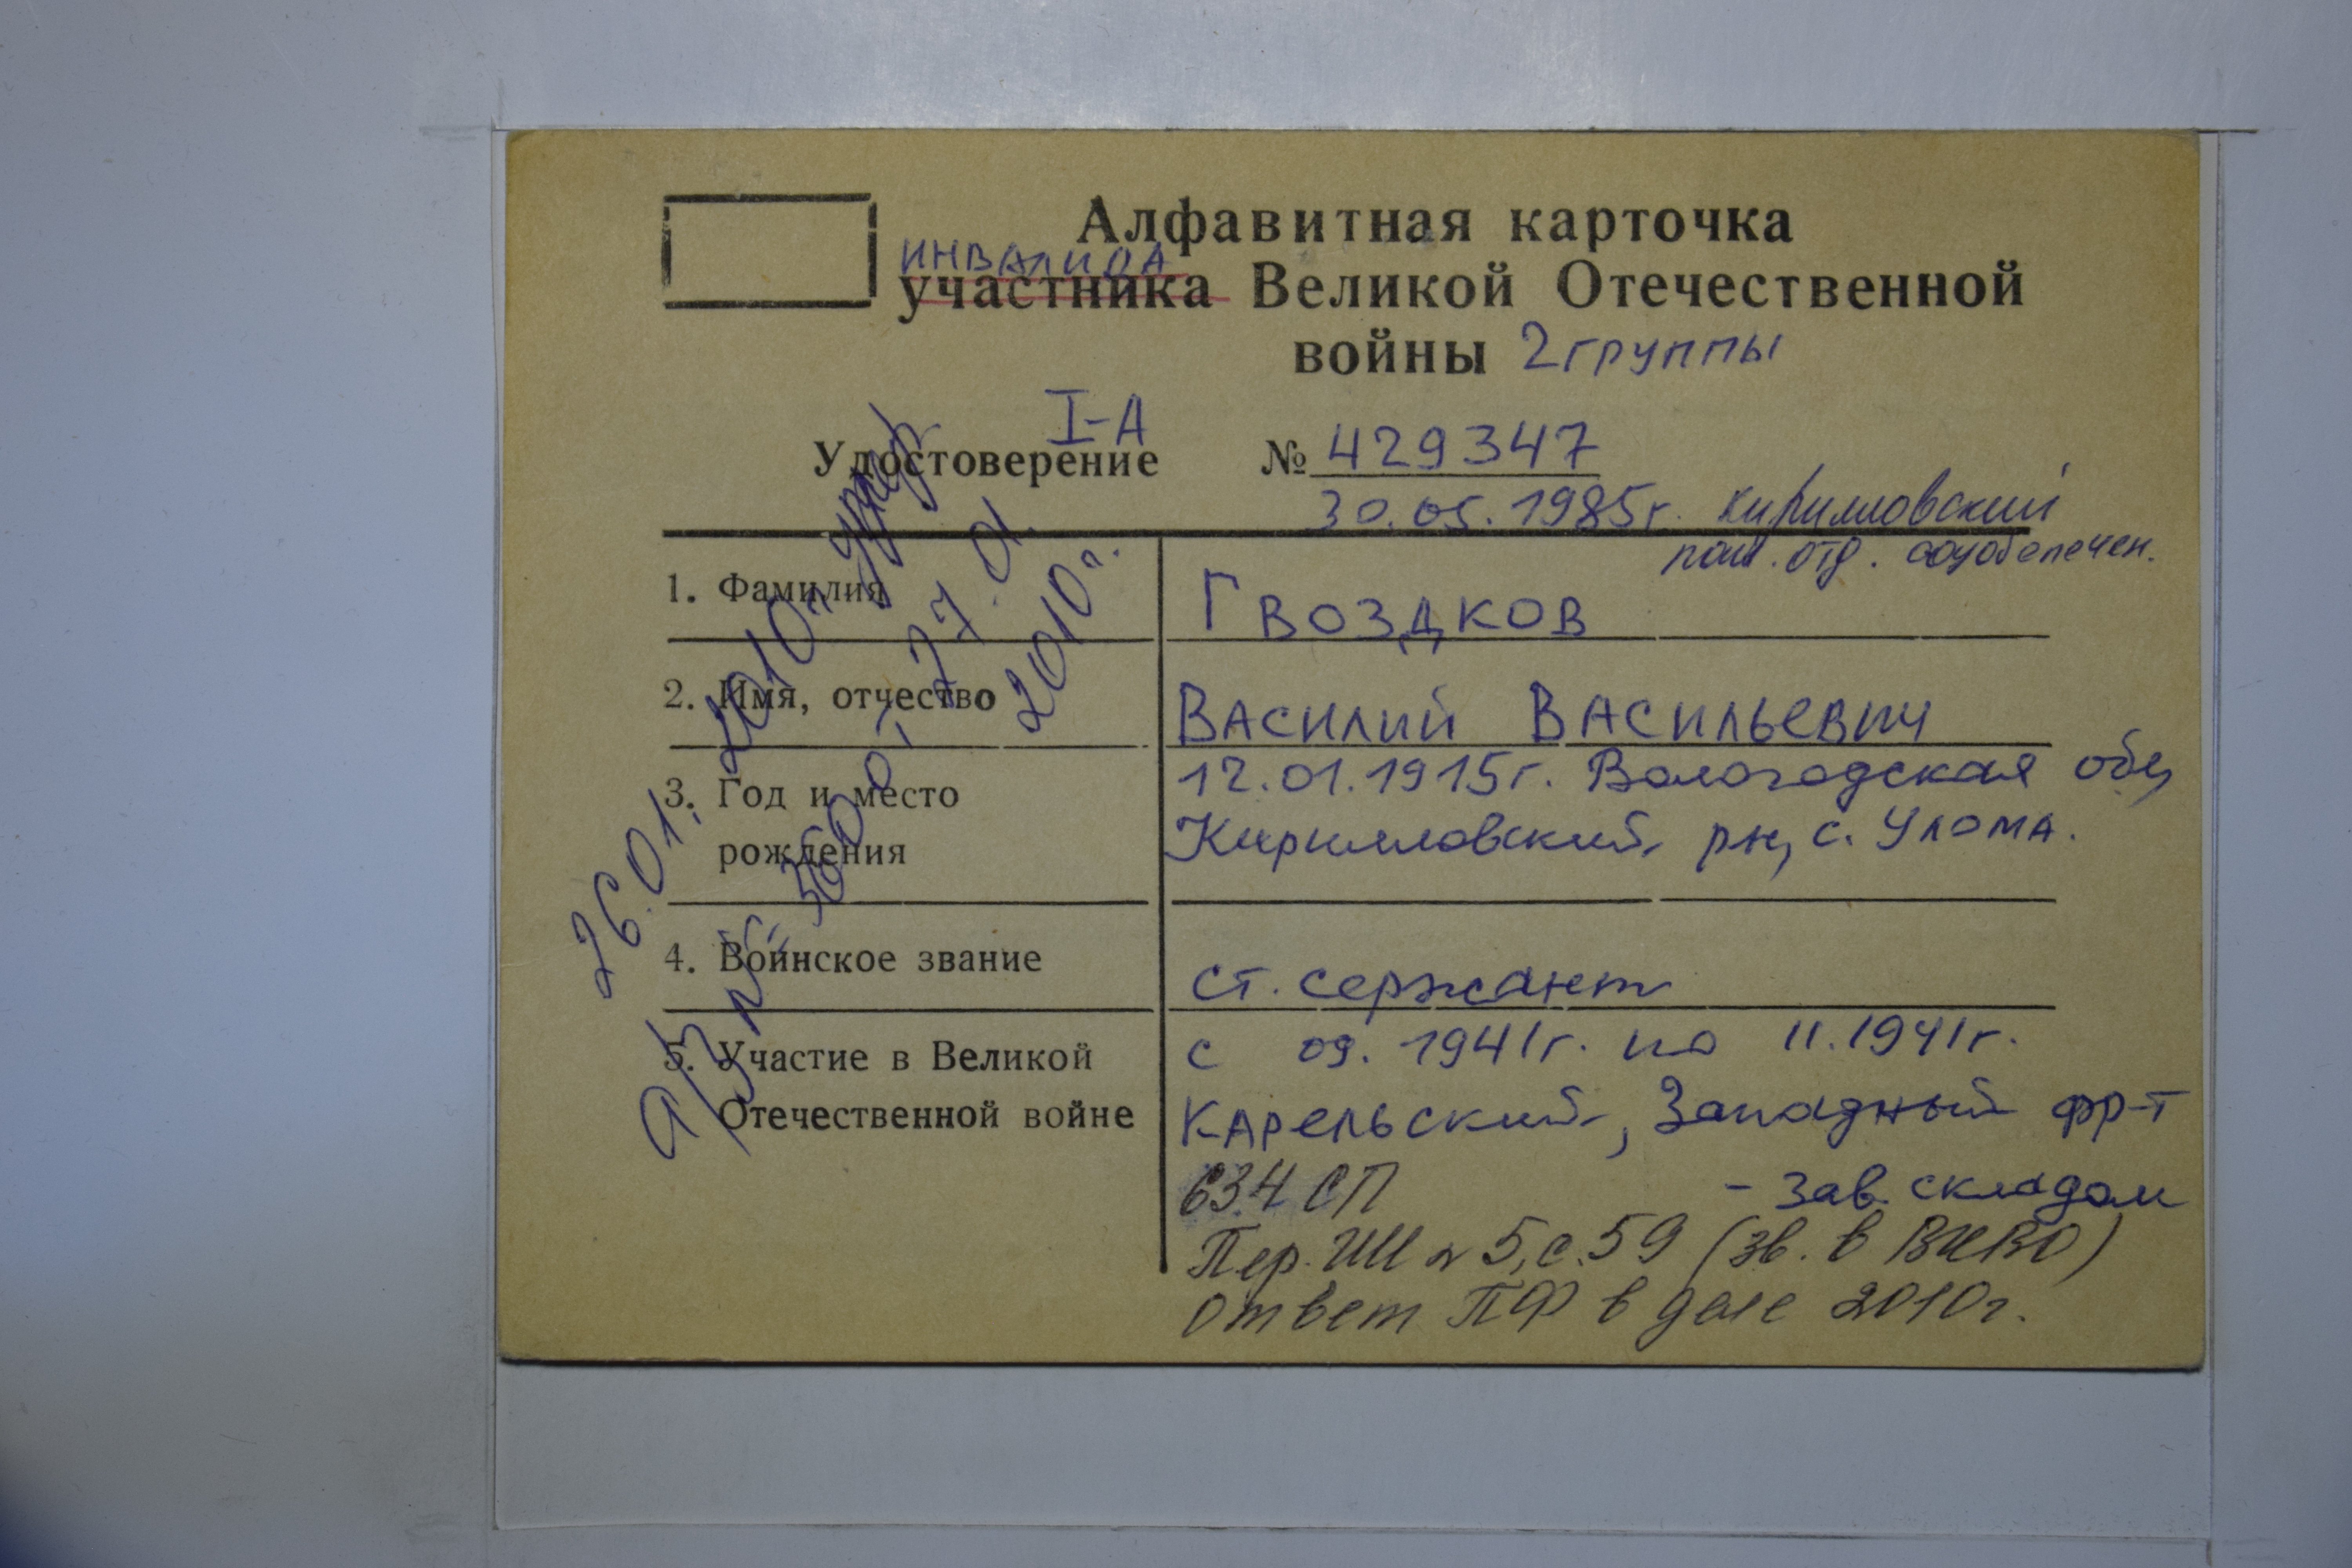 Алфавитная карточка
инвалида
участника Великой Отечественной
войны 2 группы
I-А
Удостоверение № 429347
30.05.1985г. Кирилловский
отд. соцобепечен.
1. Фамилия
Гвоздков
2. Имя, отчество
Василий Васильевич
3. Год и место
рождения
12.01.1915г. Вологодская обл,
Кирилловский рн, с. Улома.
4. Воинское звание
ст. сержант
5. Участие в Великой
Отечественной войне
с 09.1941г. по 11.1941г.
Карельский, Западный фр-т
634 СП - зав. складом
Пер. ИИ № 5, с. 59 (зв. в
Ответ ПФ в деле 2010г.
26.01. 2010г. умер
27.01.
2010г.